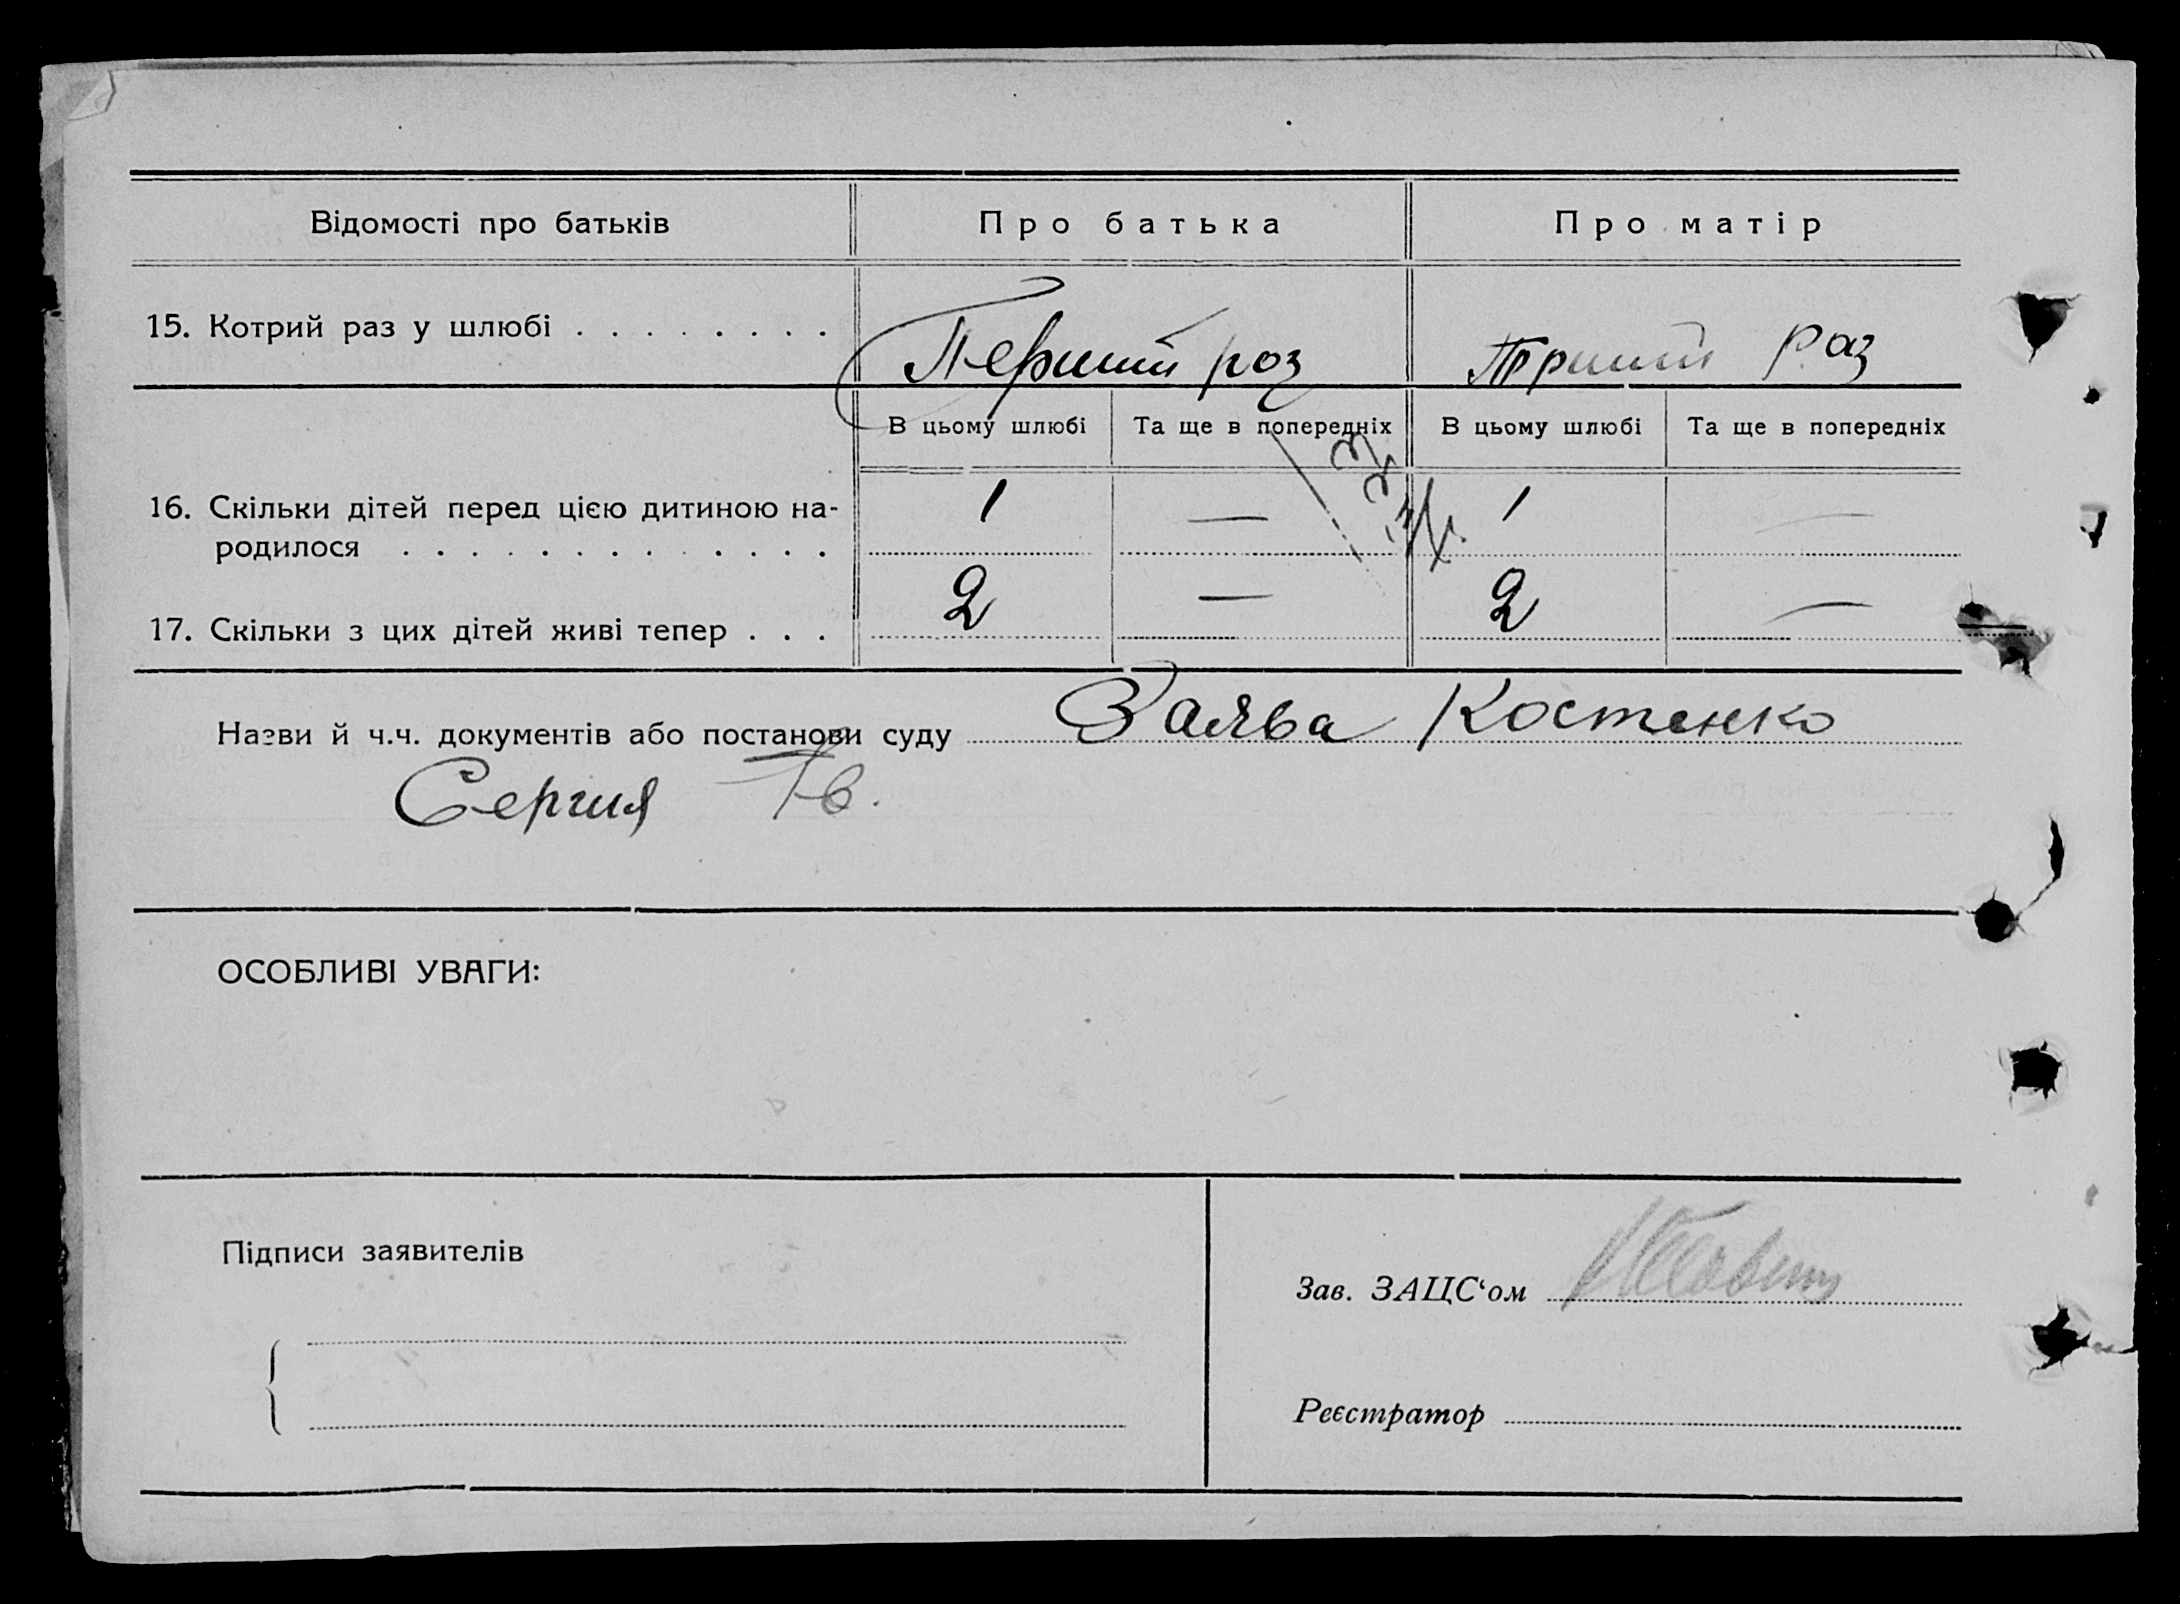 Відомості про батьків Про батька Про матір
15. Котрий раз у шлюбі . . . . . . . . Перший роз раз
В цьому шлюбі Та ще в попередніх В цьому шлюбі Та ще в попередніх
16. Скільки дітей перед цією дитиною на- 1 — 1 —
родилося . . . . . . . . . . . . .
17. Скільки з цих дітей живі тепер . . . 2 — 2 —
Назви й ч.ч. документів або постанови суду Заява Костенко
Сергия
ОСОБЛИВІ УВАГИ:
Підписи заявителів
Зав. ЗАЦС‘ом
Реєстратор